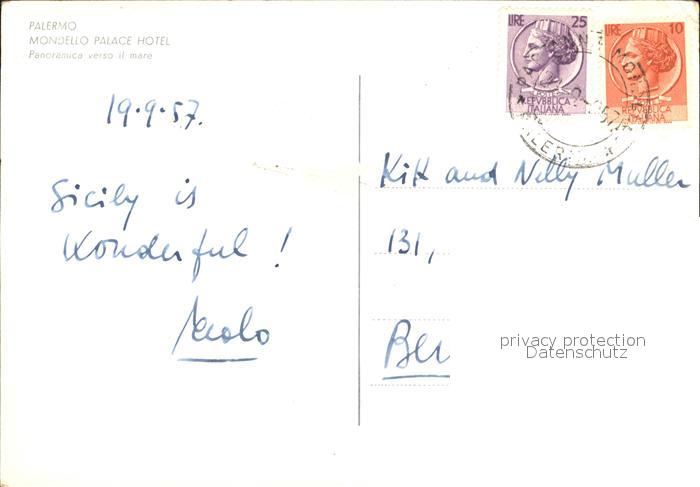 PALERMO
MONDELLO PALACE HOTEL
Panoramica verso il mare
19.9.57.
Sicily is
Wonderful !
Paolo
LIRE 25
POSTE
REPVBBLICA
ITALIANA
LIRE 10
POSTE
REPVBBLICA
ITALIANA
Kitt and Nelly Muller
131,
Ber
privacy protection
Datenschutz